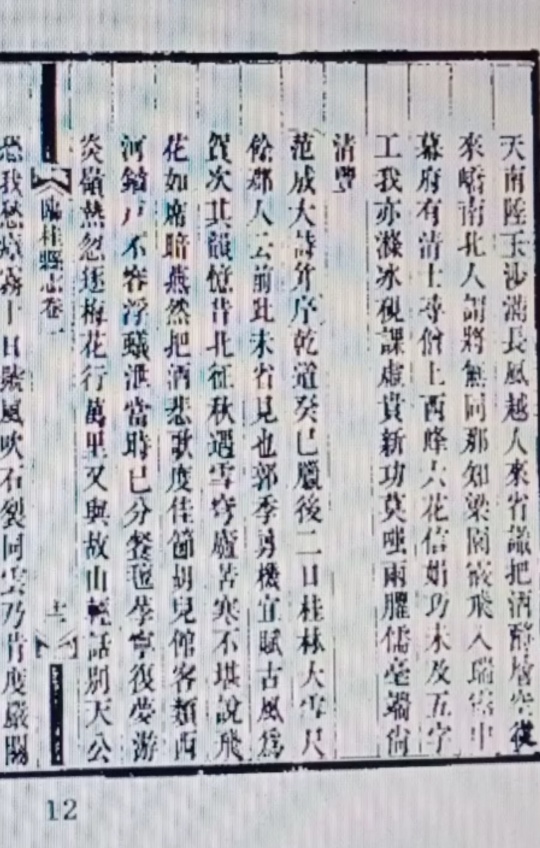 天南陸玉沙漪長風越人來省識把酒酹層空從
來嶠南北人謂將無同那知梁園霰飛入瑞雲中
幕府有清士尋僧上西峰六花信娟巧未及五字
工我亦滌冰硯課虛責新功莫嗤雨臞儒毫端尚
清豐
范成大詩并序乾道癸巳臘後二日桂林大雪尺
餘郡人云前此未省見也郭季勇機宜賦古風爲
賀次其韻憶昔北征秋遇雪穹廬苦寒不堪說飛
花如席暗燕然把酒悲歌度佳節胡兒館客類西
河鎖戶不容浮蟻泄當時已分餐氊學寧復夢游
炎嶺熱忽逐梅花行萬里又與故山輕話別天公
臨桂縣志卷一
十二
我愁瘴霧十日賒風吹石裂同雲乃肯度嚴關
12